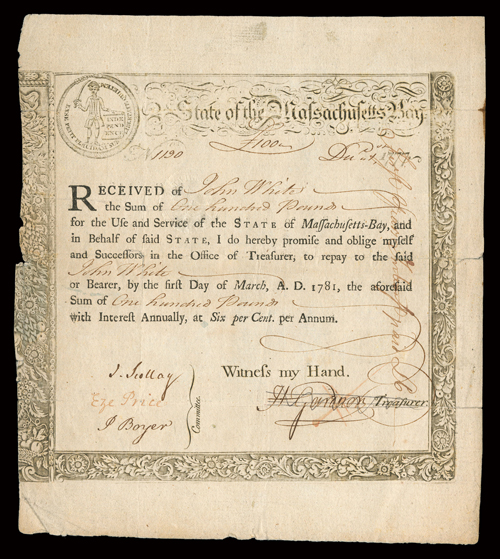 ENSE PETIT PLACIDAM SUB
INDE
PEND
ENCE
State of the Massachusetts-Bay.
£100
No 1190
RECEIVED of John White
the Sum of One hundred Pounds
for the Use and Service of the STATE of Massachusetts-Bay, and
in Behalf of said STATE, I do hereby promise and oblige myself
and Successors in the Office of Treasurer, to repay to the said
John White
or Bearer, by the first Day of March, A. D. 1781, the aforesaid
Sum of One hundred Pounds
with Interest Annually, at Six per Cent. per Annum.
Witness my Hand.
J. Scollay
Eze Price
J Boyer
Committee.
H Gardner Treasurer